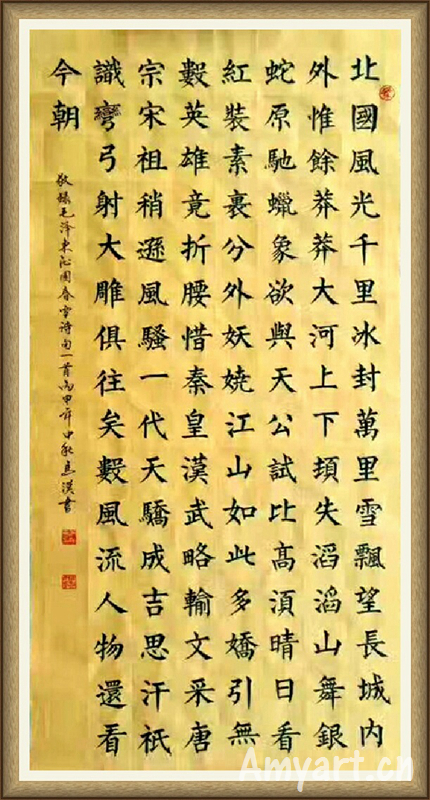 北國風光千里冰封萬里雪飄望長城内
外惟餘莽莽大河上下頓失滔滔山舞銀
蛇原馳蠟象欲與天公試比高須晴日看
紅裝素裹分外妖嬈江山如此多嬌引無
數英雄竟折腰惜秦皇漢武略輸文采唐
宗宋祖稍遜風騷一代天驕成吉思汗祇
識彎弓射大雕俱往矣數風流人物還看
今朝
敬錄毛泽東沁園春雪詩句一首丙申年中秋馬漢書
Amyart.cn